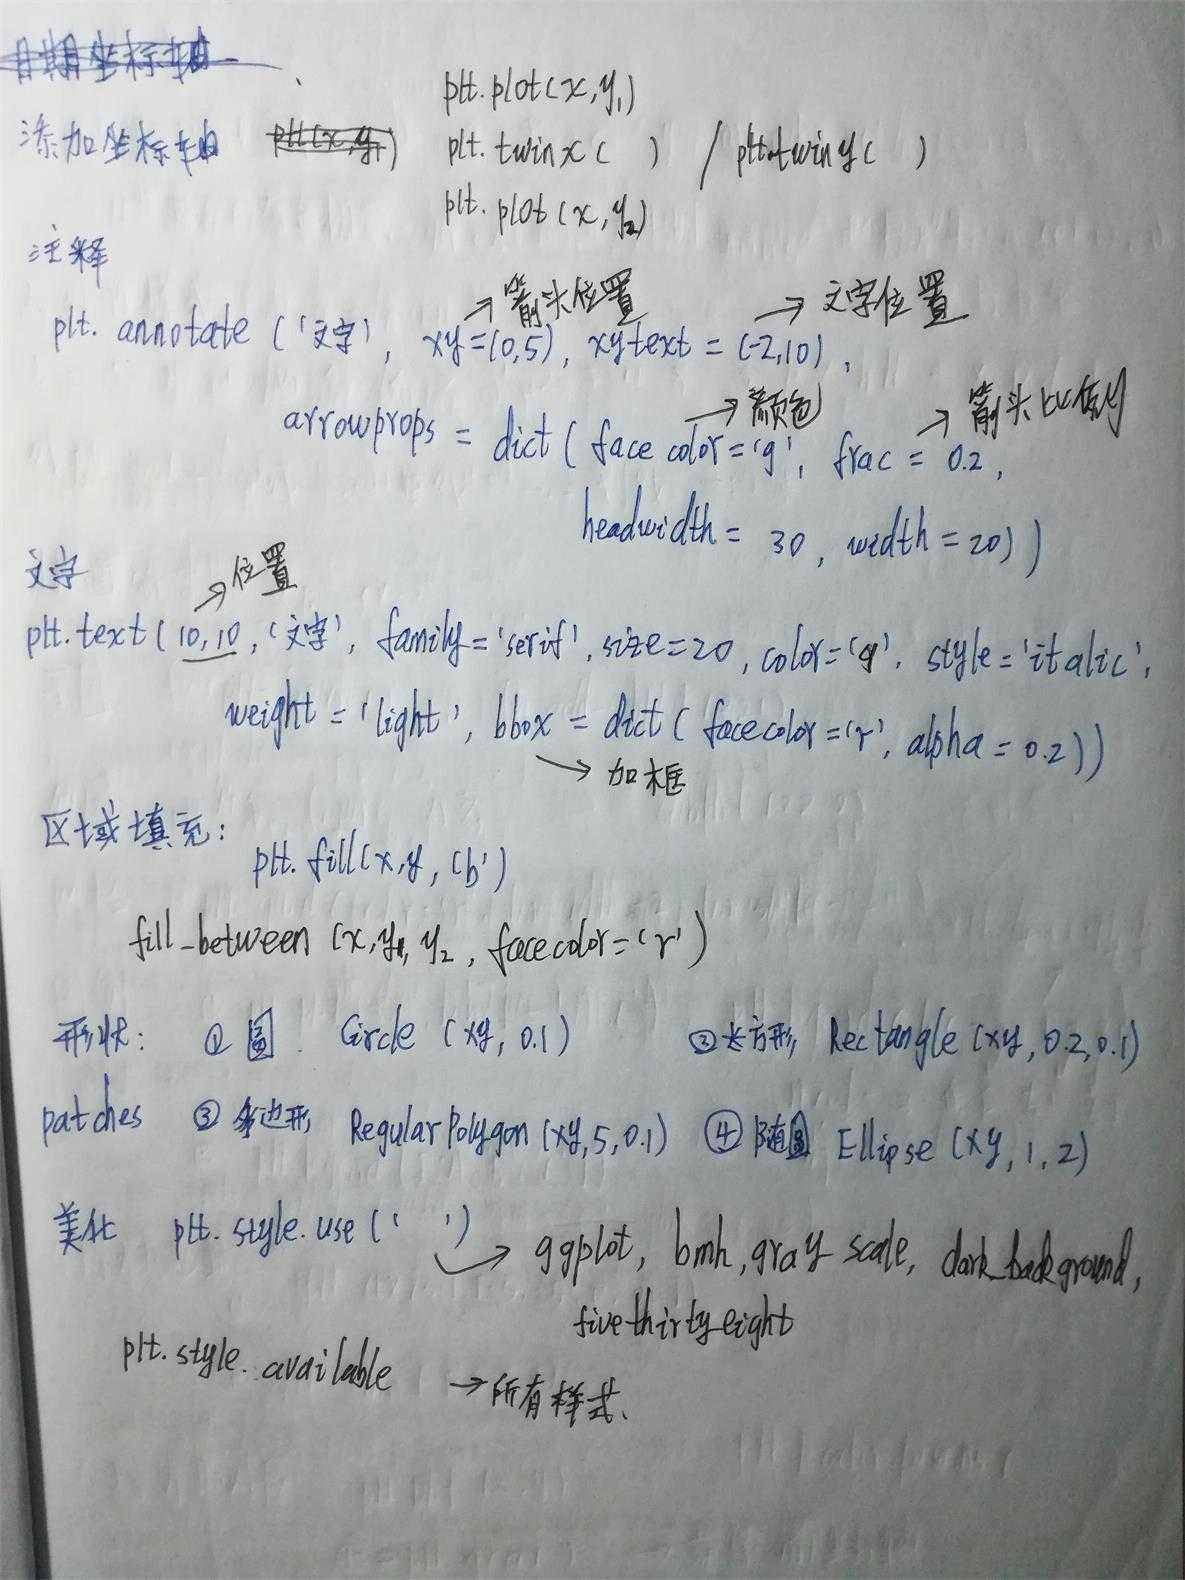 日期坐标轴
plt.plot(x,y1)
添加坐标轴 plt(x,y1) plt.twinx( ) / plt.twiny( )
plt.plot(x,y2)
注释
→箭头位置 →文字位置
plt.annotate('文字', xy=(0,5), xytext=(-2,10),
→颜色 →箭头比例
arrowprops = dict(facecolor='g', frac = 0.2,
headwidth = 30, width=20))
文字
→位置
plt.text(10,10,'文字', family='serif', size=20, color='g', style='italic',
weight='light', bbox = dict(facecolor='r', alpha=0.2))
→加框
区域填充:
plt.fill(x,y,'b')
fill_between(x,y1,y2, facecolor='r')
形状: ①圆 Circle(xy, 0.1) ②长方形 Rectangle(xy, 0.2, 0.1)
patches ③多边形 RegularPolygon(xy,5,0.1) ④随圆 Ellipse(xy,1,2)
美化 plt.style.use(' ') → ggplot, bmh, grayscale, dark_background,
fivethirtyeight
plt.style.available → 所有样式.